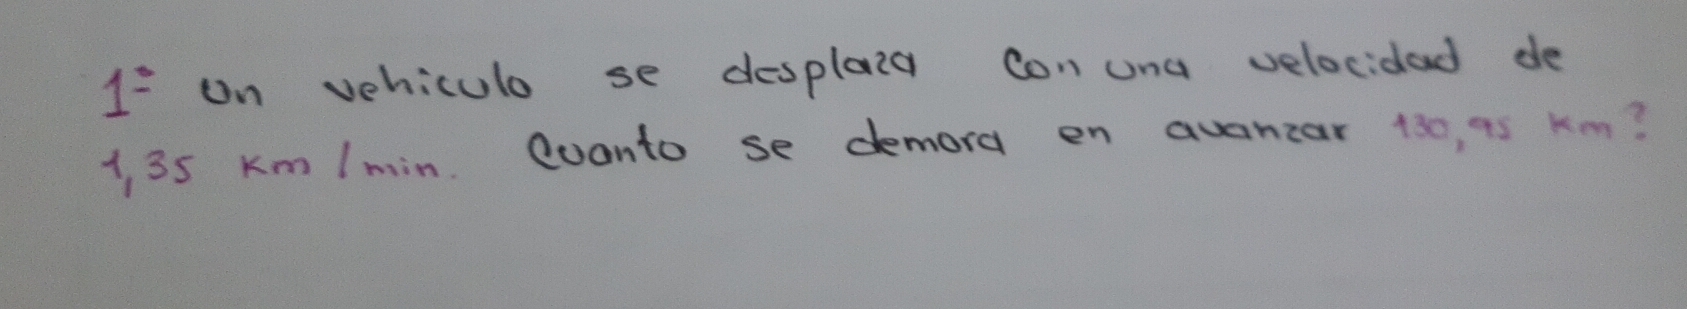 1º Un vehiculo se desplaza con una velocidad de
1,35 km/min. Cuanto se demora en avanzar 130,95 km?